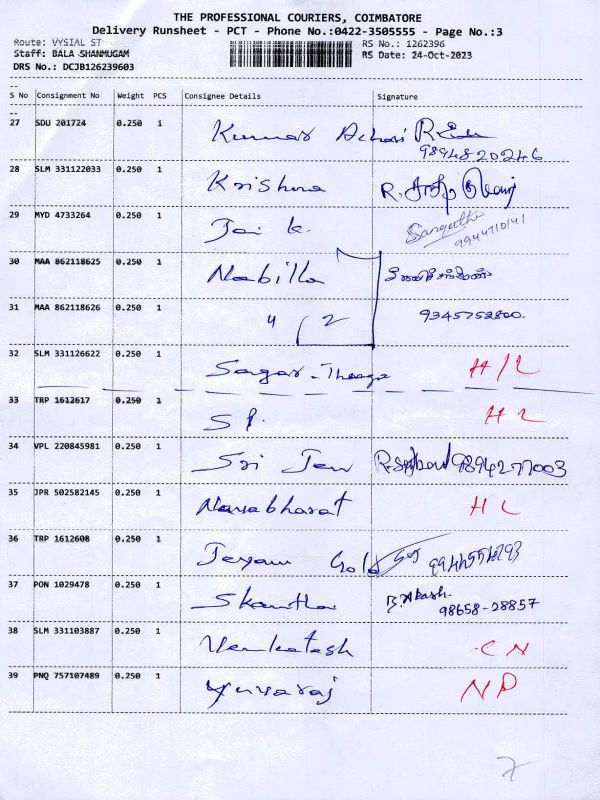 THE PROFESSIONAL COURIERS, COIMBATORE
Delivery Runsheet - PCT - Phone No.:0422-3505555 - Page No.:3
Route: VYSIAL ST
RS No.: 1262396
Staff: BALA SHANMUGAM
RS Date: 24-Oct-2023
DRS No.: DCJB126239603
S No Consignment No Weight PCS Consignee Details Signature
27 SDU 201724 0.250 1 Kumar Achari
9894820246
28 SLM 331122033 0.250 1 Krishna R.
29 MYD 4733264 0.250 1 Jai k.
9944710141
30 MAA 862118625 0.250 1 Nabilla
31 MAA 862118626 0.250 1 4 2 9345752800
32 SLM 331126622 0.250 1 Sagar - H/L
33 TRP 1612617 0.250 1 SP. H L
34 VPL 220845981 0.250 1 Sri Jew 9894277003
35 JPR 502582145 0.250 1 Navabharat H L
36 TRP 1612608 0.250 1 Jeyam Gold
37 PON 1029478 0.250 1 Skantha B. Akash.
98658-28857
38 SLM 331103887 0.250 1 Venkatash CN
39 PNQ 757107489 0.250 1 Yuvaraj ND
7